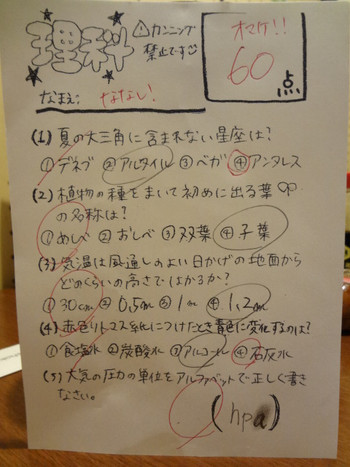 理科
⚠カンニング
禁止です
オマケ!!
60
点
なまえ: ななし!
(1) 夏の大三角に含まれない星座は?
①デネブ ②アルタイル ③ベガ ④アンタレス
(2) 植物の種をまいて初めに出る葉
の名称は?
①めしべ ②おしべ ③双葉 ④子葉
(3) 気温は風通しのよい日かげの地面から
どのくらいの高さではかるか?
①30cm ②0,5m ③1m ④1,2m
(4) 赤色リトマス紙につけたとき青色に変化するのは?
①食塩水 ②炭酸水 ③アルコール ④石灰水
(5) 大気の圧力の単位をアルファベットで正しく書き
なさい。
(hpa)